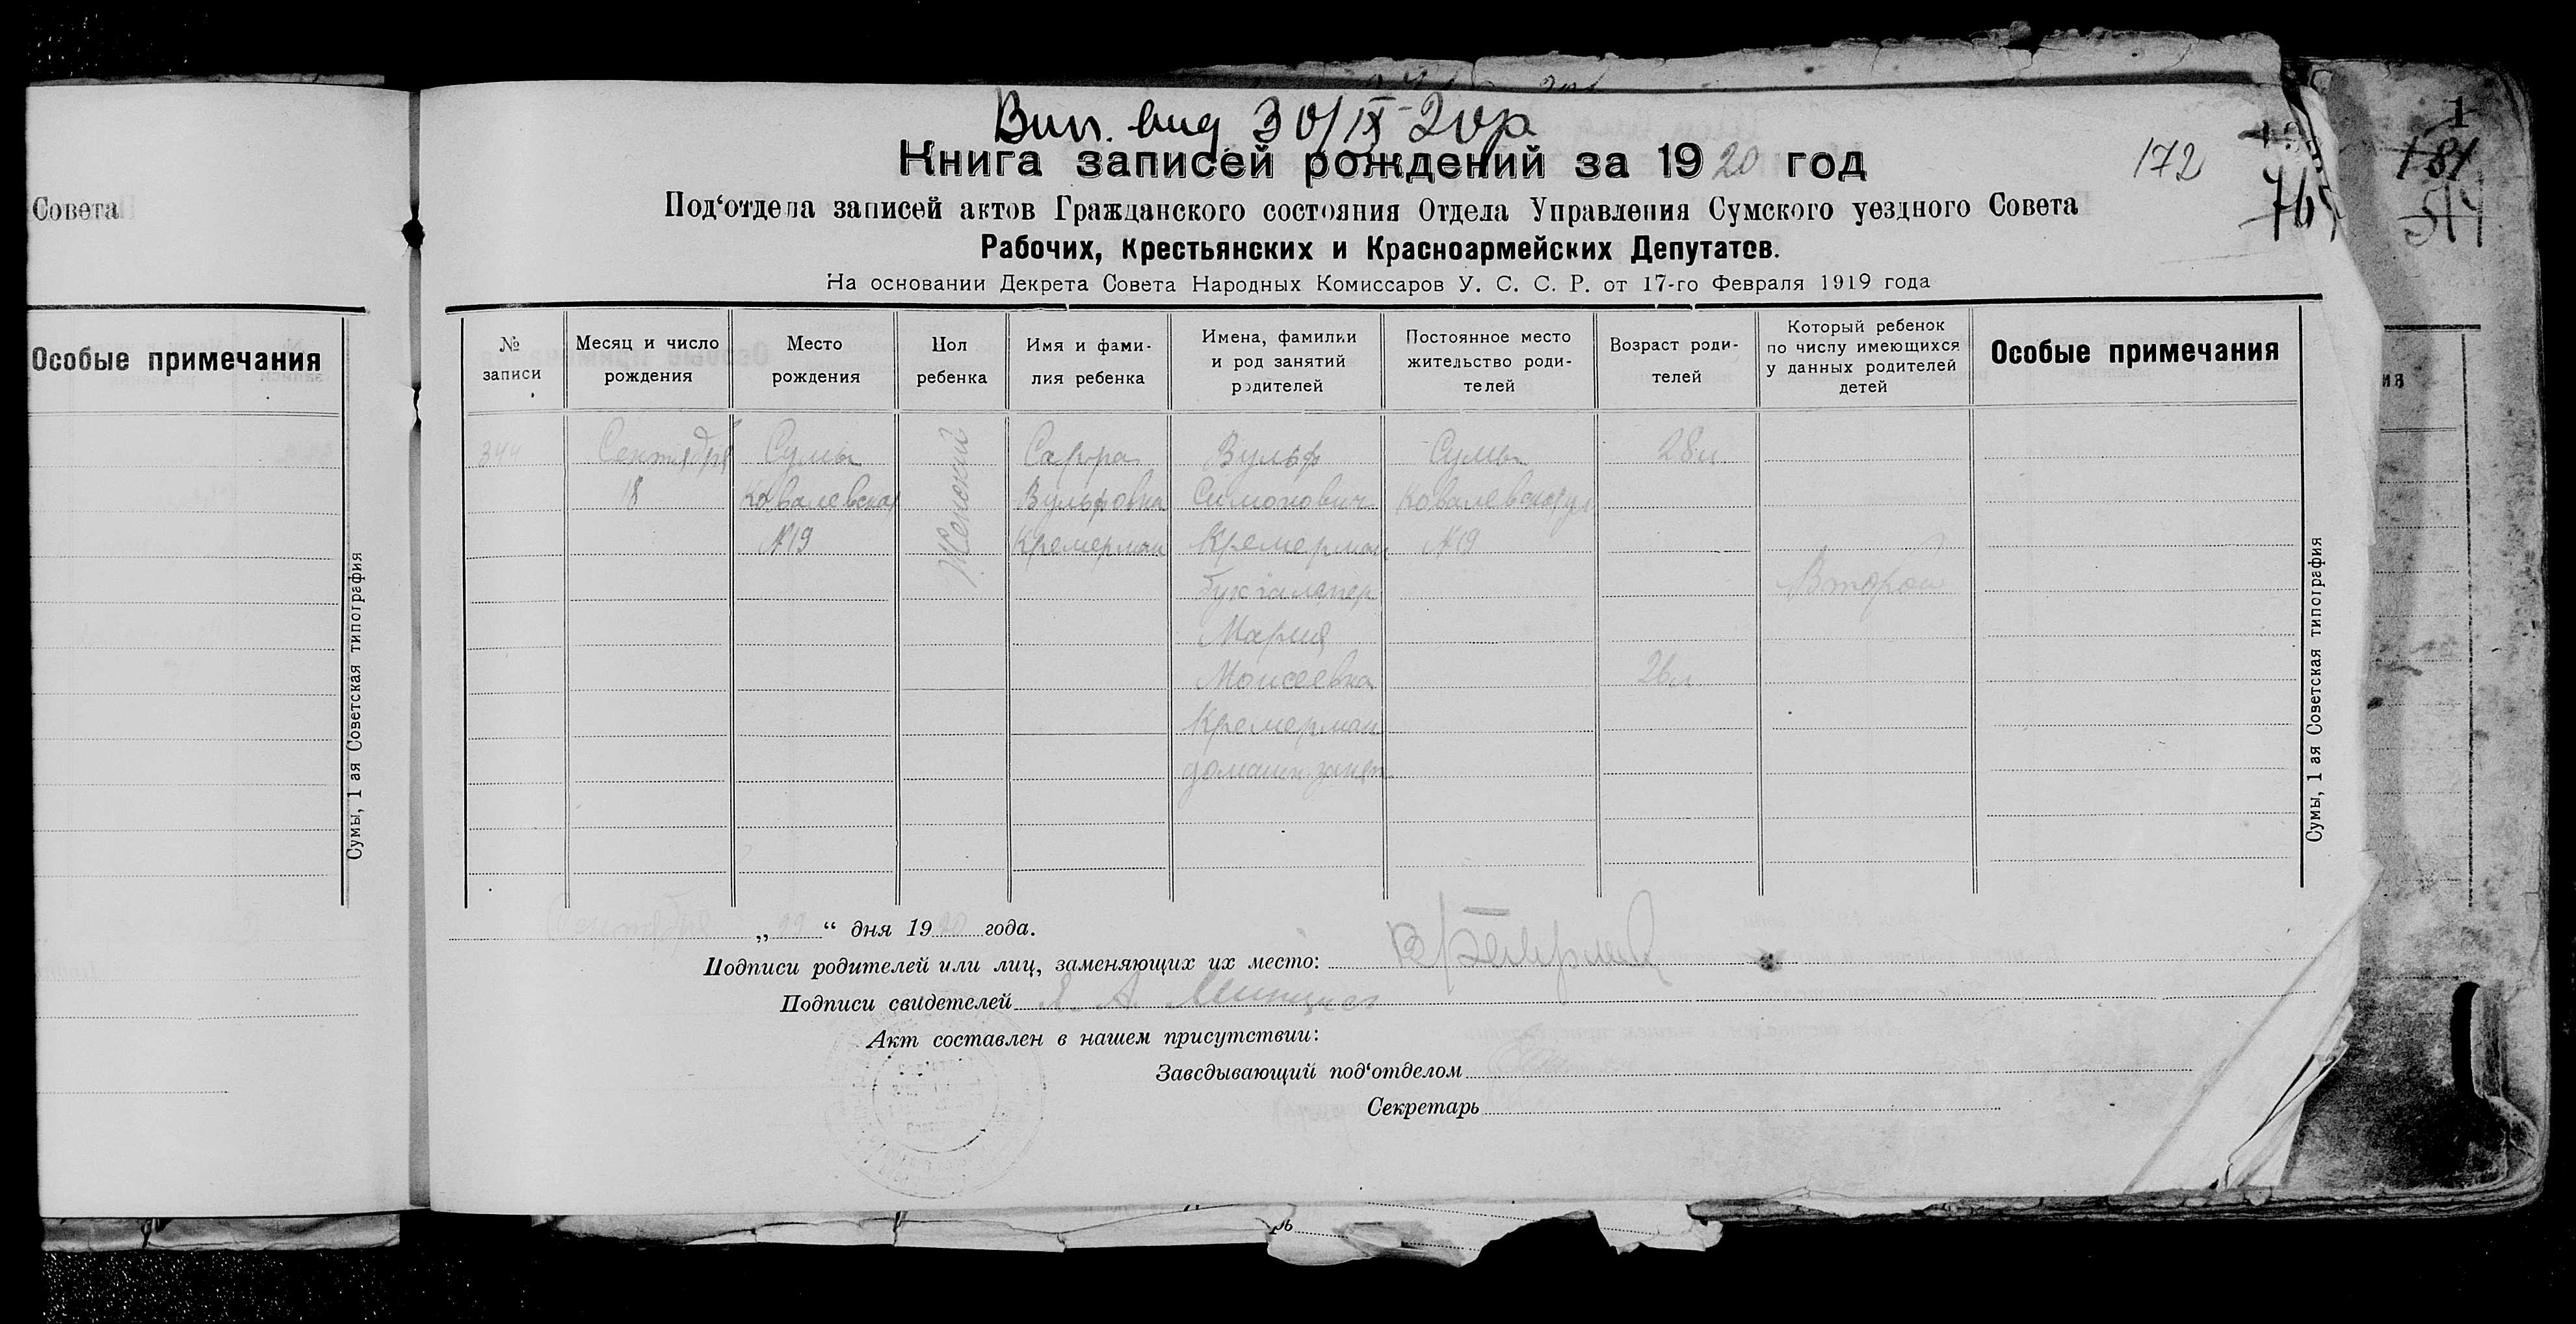 Совета
Особые примечания
Сумы, 1 ая Советская типография
30/IX-20р
Книга записей рождений за 1920 год
172
181
Под‘отдела записей актов Гражданского состояния Отдела Управления Сумского уездного Совета
Рабочих, Крестьянских и Красноармейских Депутатов.
На основании Декрета Совета Народных Комиссаров У. С. С. Р. от 17-го Февраля 1919 года
№ записи
Месяц и число рождения
Место рождения
Пол ребенка
Имя и фами-
лия ребенка
Имена, фамилии
и род занятий
родителей
Постоянное место
жительство роди-
телей
Возраст роди-
телей
Который ребенок
по числу имеющихся
у данных родителей
детей
Особые примечания
344
Сентября
18
Сумы
Ковалевская
№19
Женский
Сарра
Вульфовна
Кремерман
Вульф
Симонович
Кремерман
бухгалтер
Мария
Моисеевна
Кремерман
домашн. занят.
Сумы
Ковалевская ул
№19
28 л.
26 л.
Второй
Сумы, 1 ая Советская типография
Сентября „22“ дня 1920 года.
Подписи родителей или лиц, заменяющих их место: ВКремерман
Подписи свидетелей
Акт составлен в нашем присутствии:
Заведывающий под‘отделом
Секретарь